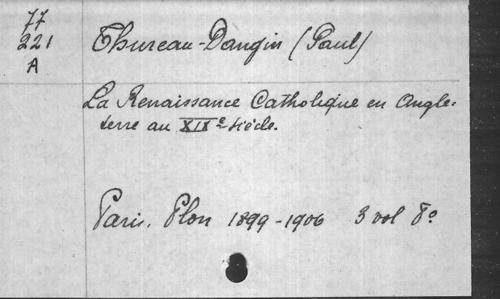 77
221
A
Thureau-Dangin (Paul)
La Renaissance Catholique en Angle-
terre au XIXe siècle.
Paris. Plon 1899-1906 3 vol 8o